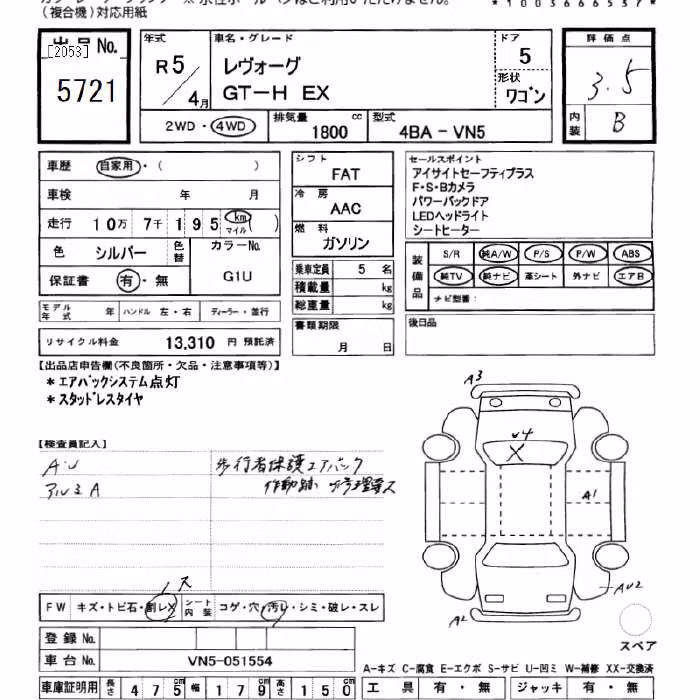 (複合機)対応用紙
出品No.
[2053]
5721
年式
R5/4月
車名・グレード
レヴォーグ
GT-H EX
ドア
5
形状
ワゴン
評価点
3.5
内装
B
2WD・4WD
排気量
1800 cc
型式
4BA-VN5
車歴 自家用・( )
車検 年 月
走行 10万 7千 195 km マイル ( )
色 シルバー 色替
カラーNo.
G1U
保証書 有・無
モデル年式 年 ハンドル 左・右 ディーラー・並行
リサイクル料金 13,310 円 預託済
シフト
FAT
冷房
AAC
燃料
ガソリン
乗車定員 5 名
積載量 kg
総重量 kg
書類期限
月 日
セールスポイント
アイサイトセーフティプラス
F・S・Bカメラ
パワーバックドア
LEDヘッドライト
シートヒーター
装備品
S/R 純A/W P/S P/W ABS
純TV 純ナビ 革シート 外ナビ エアB
ナビ型番:
後日品
【出品店申告欄(不良箇所・欠品・注意事項等)】
*エアバックシステム点灯
*スタッドレスタイヤ
【検査員記入】
A・U
アルミA
歩行者保護エアバック
作動跡 修理要ス
A3
W4
X
A1
AU2
A2
スペア
ス
FW キズ・トビ石・割レX シート内装 コゲ・穴・汚レ・シミ・破レ・スレ
登録No.
車台No. VN5-051554
車庫証明用 長さ 475 cm 幅 179 cm 高さ 150 cm
A-キズ C-腐食 E-エクボ S-サビ U-凹ミ W-補修 XX-交換済
工具 有・無 ジャッキ 有・無